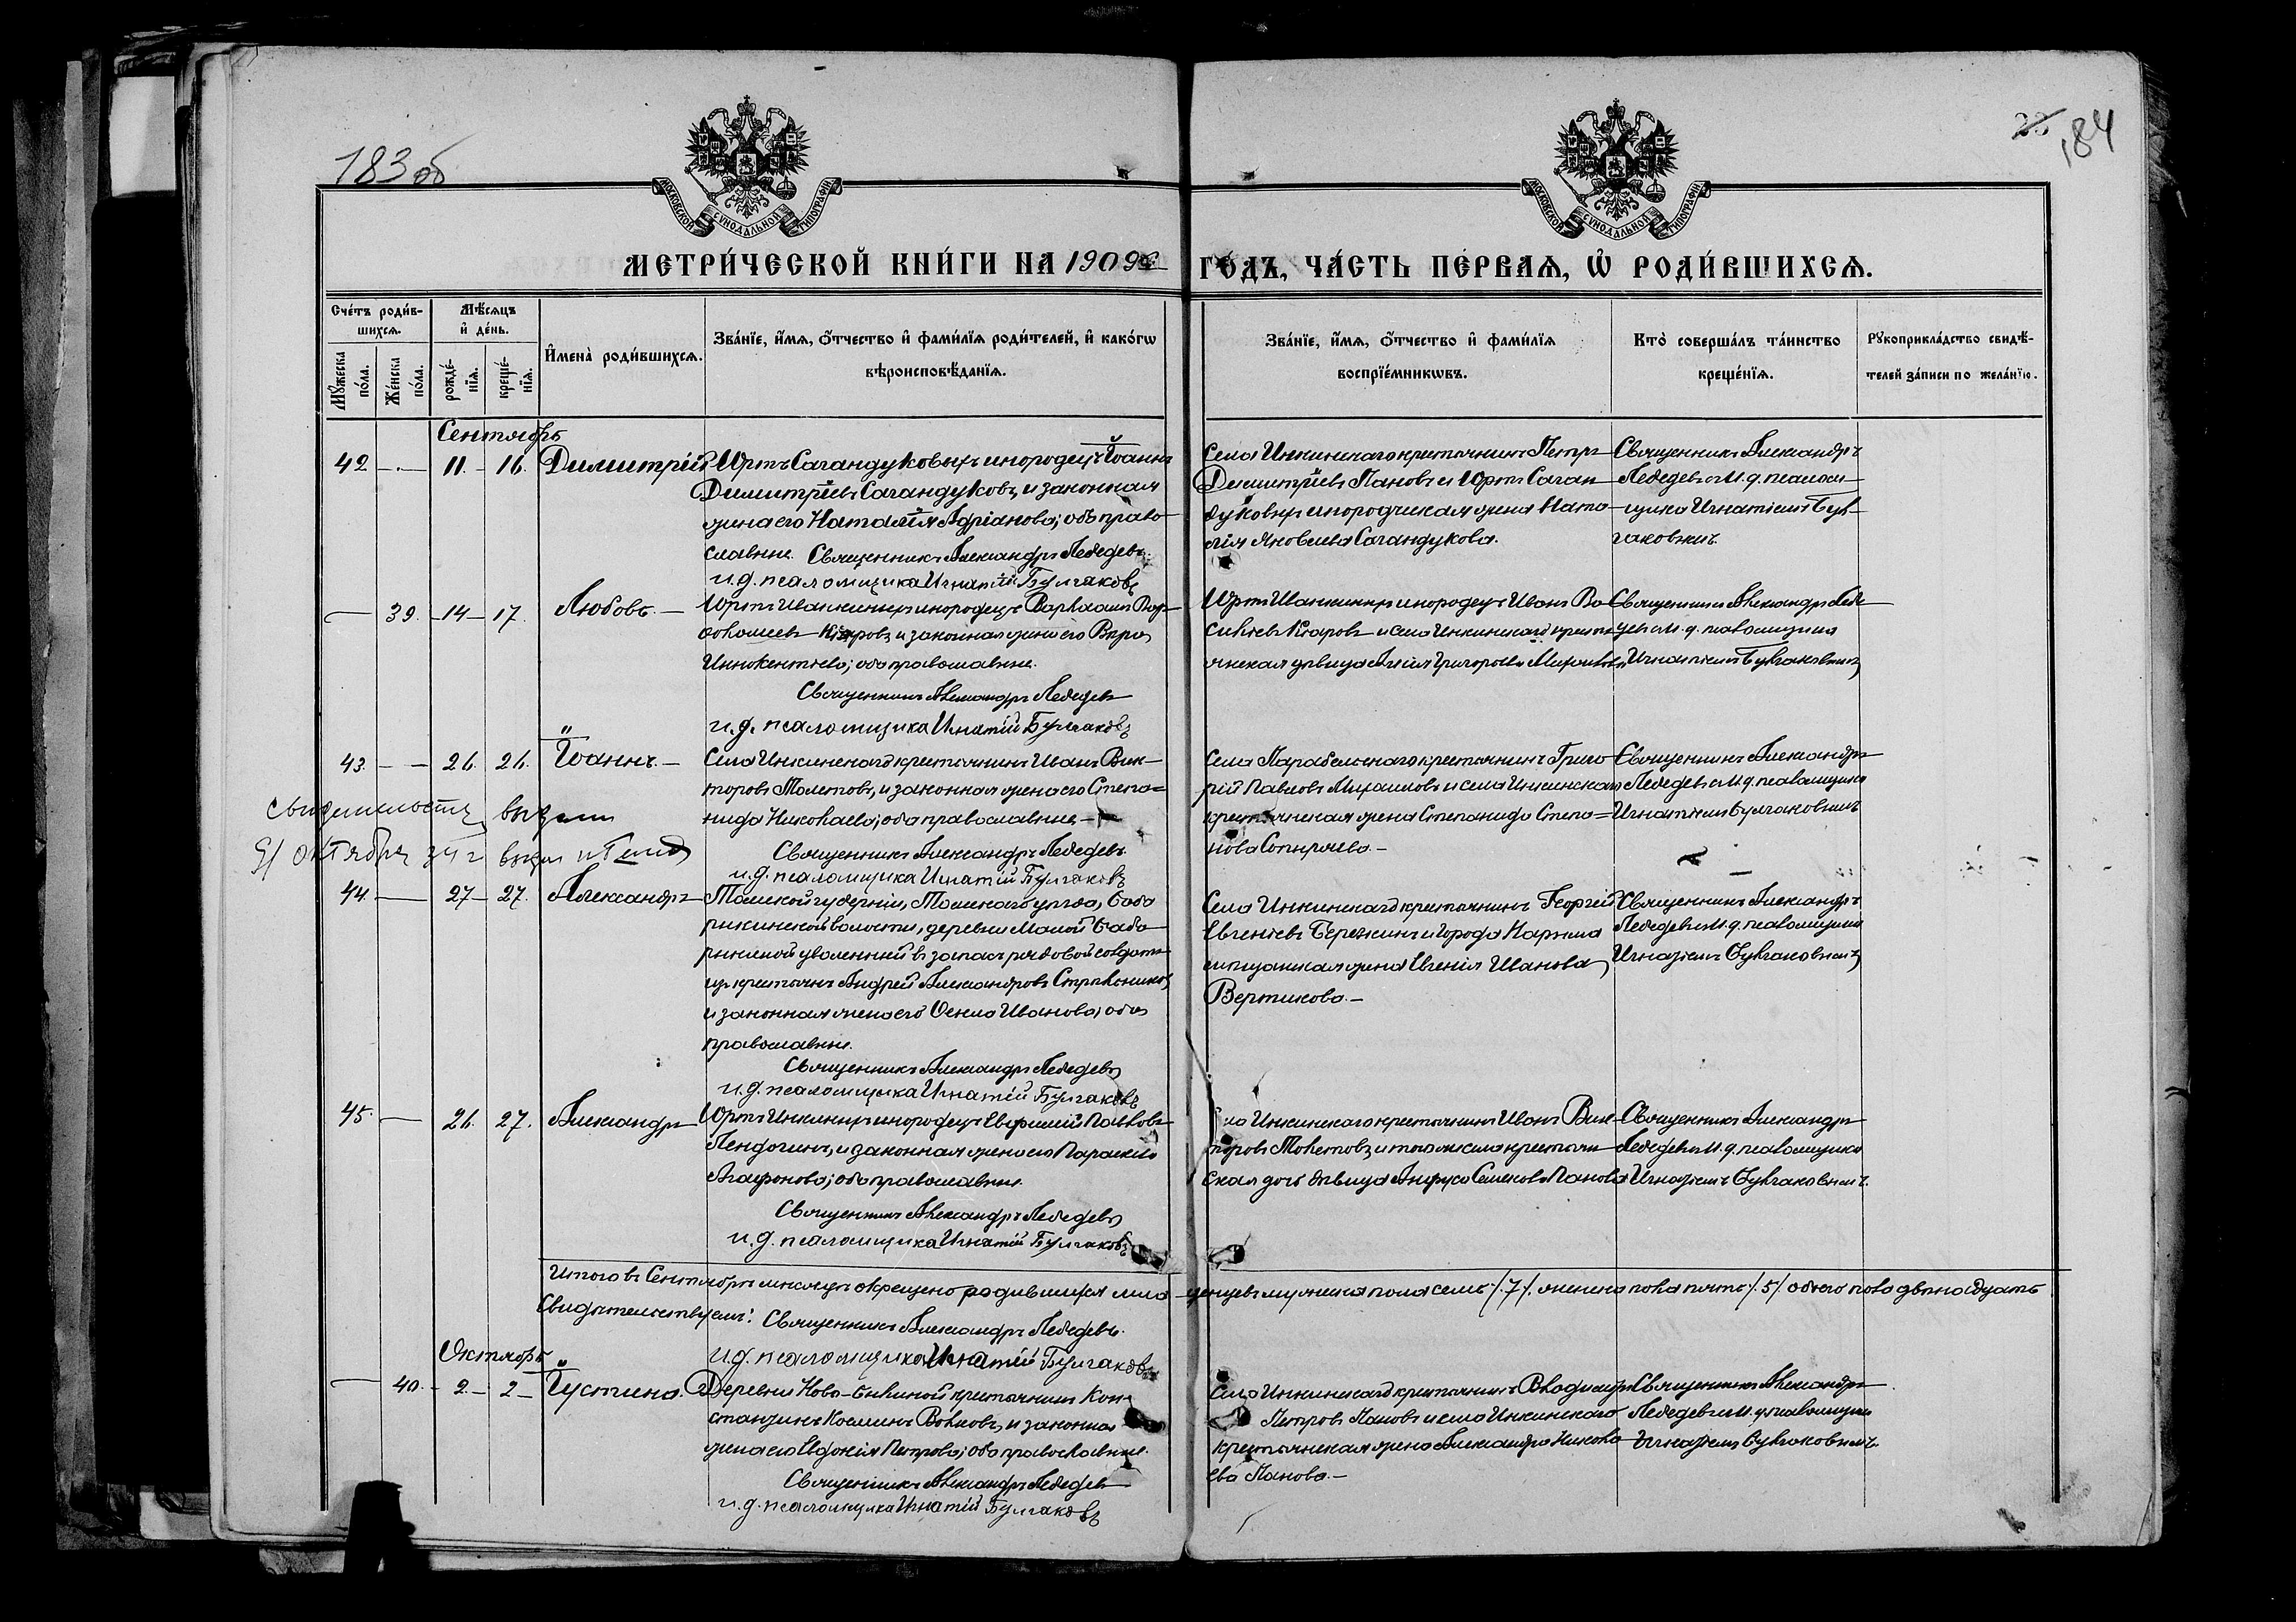 183 об
184
МОСКОВСКОЙ СѴНОДАЛЬНОЙ ТИПОГРАФІИ
МОСКОВСКОЙ СѴНОДАЛЬНОЙ ТИПОГРАФІИ
МЕТРИ́ЧЕСКОЙ КНИ́ГИ НА 1909 ГО́ДЪ, ЧА́СТЬ ПЕ́РВАѦ, Ѡ҆ РОДИ́ВШИХСѦ.
Сче́тъ роди́в-
шихсѧ.
Мꙋ́жеска по́ла.
Же́нска по́ла.
Мѣ́сѧцъ
и҆ де́нь.
рожде́-
нїѧ.
креще́-
нїѧ.
И҆мена̀ роди́вшихсѧ.
Зва́нїе, и҆́мѧ, ѻ҆́тчество и҆ фами́лїѧ роди́телей, и҆ како́гѡ
вѣроисповѣ́данїѧ.
Зва́нїе, и҆́мѧ, ѻ҆́тчество и҆ фами́лїѧ
воспрїе́мникѡвъ.
Кто̀ соверша́лъ та́инство
креще́нїѧ.
Рꙋкоприкла́дство свидѣ́-
телей за́писи по жела́нїю.
Сентябрь
42 — 11. 16. Димитрій
Юртъ Сагандуковыхъ инородецъ Іоаннъ
Димитріевъ Сагандуковъ, и законная
жена его Наталія Адріанова; оба право-
славные. Священникъ Александръ Лебедевъ.
и.д. псаломщика Игнатій Булгаковъ
Села Инкинскаго крестьянинъ Петръ
Димитріевъ Пановъ и Юртъ Саган-
дуковыхъ инородческая жена Ната-
лія Яковлева Сагандукова.
Священникъ Александръ
Лебедевъ и И.д. псалом-
щика Игнатіемъ Бул-
гаковымъ.
— 39. 14 — 17. Любовь. —
Юртъ Иванкиныхъ инородецъ Варлаамъ Вар-
лаамовъ и законная жена его Вѣра
Иннокентіева; оба православные.
Священникъ Александръ Лебедевъ
и.д. псаломщика Игнатій Булгаковъ
Юртъ Иванкиныхъ инородецъ Иванъ Ва-
сильевъ и села Инкинскаго кресть-
янская дѣвица Григорьева
Священникъ Александръ Лебе-
девъ и И.д. псаломщика
Игнатіемъ Булгаковымъ
43. — — 26. 26. Іоаннъ. —
Села Инкинскаго крестьянинъ Иванъ Вик-
торовъ Молетовъ, и законная жена его Степа=
нида Николаева; оба православные. —
Священникъ Александръ Лебедевъ.
и.д. псаломщика Игнатій Булгаковъ
Села Парабельскаго крестьянинъ Григо-
рій Павловъ Михаиловъ и села Инкинскаго
крестьянская жена Степанида Степа=
нова —
Священникъ Александръ
Лебедевъ и И.д. псаломщика
Игнатіемъ Булгаковымъ
9/ октября
44. — 27 — 27. Александръ
Томской губерніи, Томскаго уѣзда, Баба-
рыкинской волости, деревни Малой Баба-
рыкиной уволенный въ запасъ рядовой солдатъ
изъ крестьянъ Андрей Александровъ Стрѣльниковъ
и законная жена его Иванова; оба
православные.
Священникъ Александръ Лебедевъ
и.д. псаломщика Игнатій Булгаковъ
Села Инкинскаго крестьянинъ Георгій
Евгеніевъ Бережинъ и города Нарыма
мѣщанская жена Евгенія Иванова
Вертикова. —
Священникъ Александръ
Лебедевъ и И.д. псаломщика
Игнатіемъ Булгаковымъ
45. — 26. 27. Александръ
Юртъ Инкиныхъ инородецъ Евфимій Павловъ
Пендогинъ, и законная жена его Параскева
Агафонова; оба православные.
Священникъ Александръ Лебедевъ
и.д. псаломщика Игнатій Булгаковъ
Села Инкинскаго крестьянинъ Иванъ Вик-
торовъ Молетовъ и того же села крестьян-
ская дочь дѣвица Анфуса Семенова Панова
Священникъ Александръ
Лебедевъ и И.д. псаломщика
Игнатіемъ Булгаковымъ.
Итого въ Сентябрѣ мѣсяцѣ окрещено родившихся мла-денцевъ мужеска пола семь /7/. женска пола пять /5/ обоего пола двѣнадцать
Свидѣтельствуемъ: Священникъ Александръ Лебедевъ.
И.д. псаломщика Игнатій Булгаковъ
Октябрь
— 40. 2 — 2 — Іустина.
Деревни Ново- крестьянинъ Кон-
стантинъ Косминъ Волковъ, и законная
жена его Евдокія Петрова; оба православные.
Священникъ Александръ Лебедевъ
и.д. псаломщика Игнатій Булгаковъ
Села Инкинскаго крестьянинъ Владиміръ
Петровъ Пановъ и села Инкинскаго
крестьянская жена Александра Никола-
ева Панова. —
Священникъ Александръ
Лебедевъ и И.д. псаломщика
Игнатіемъ Булгаковымъ.